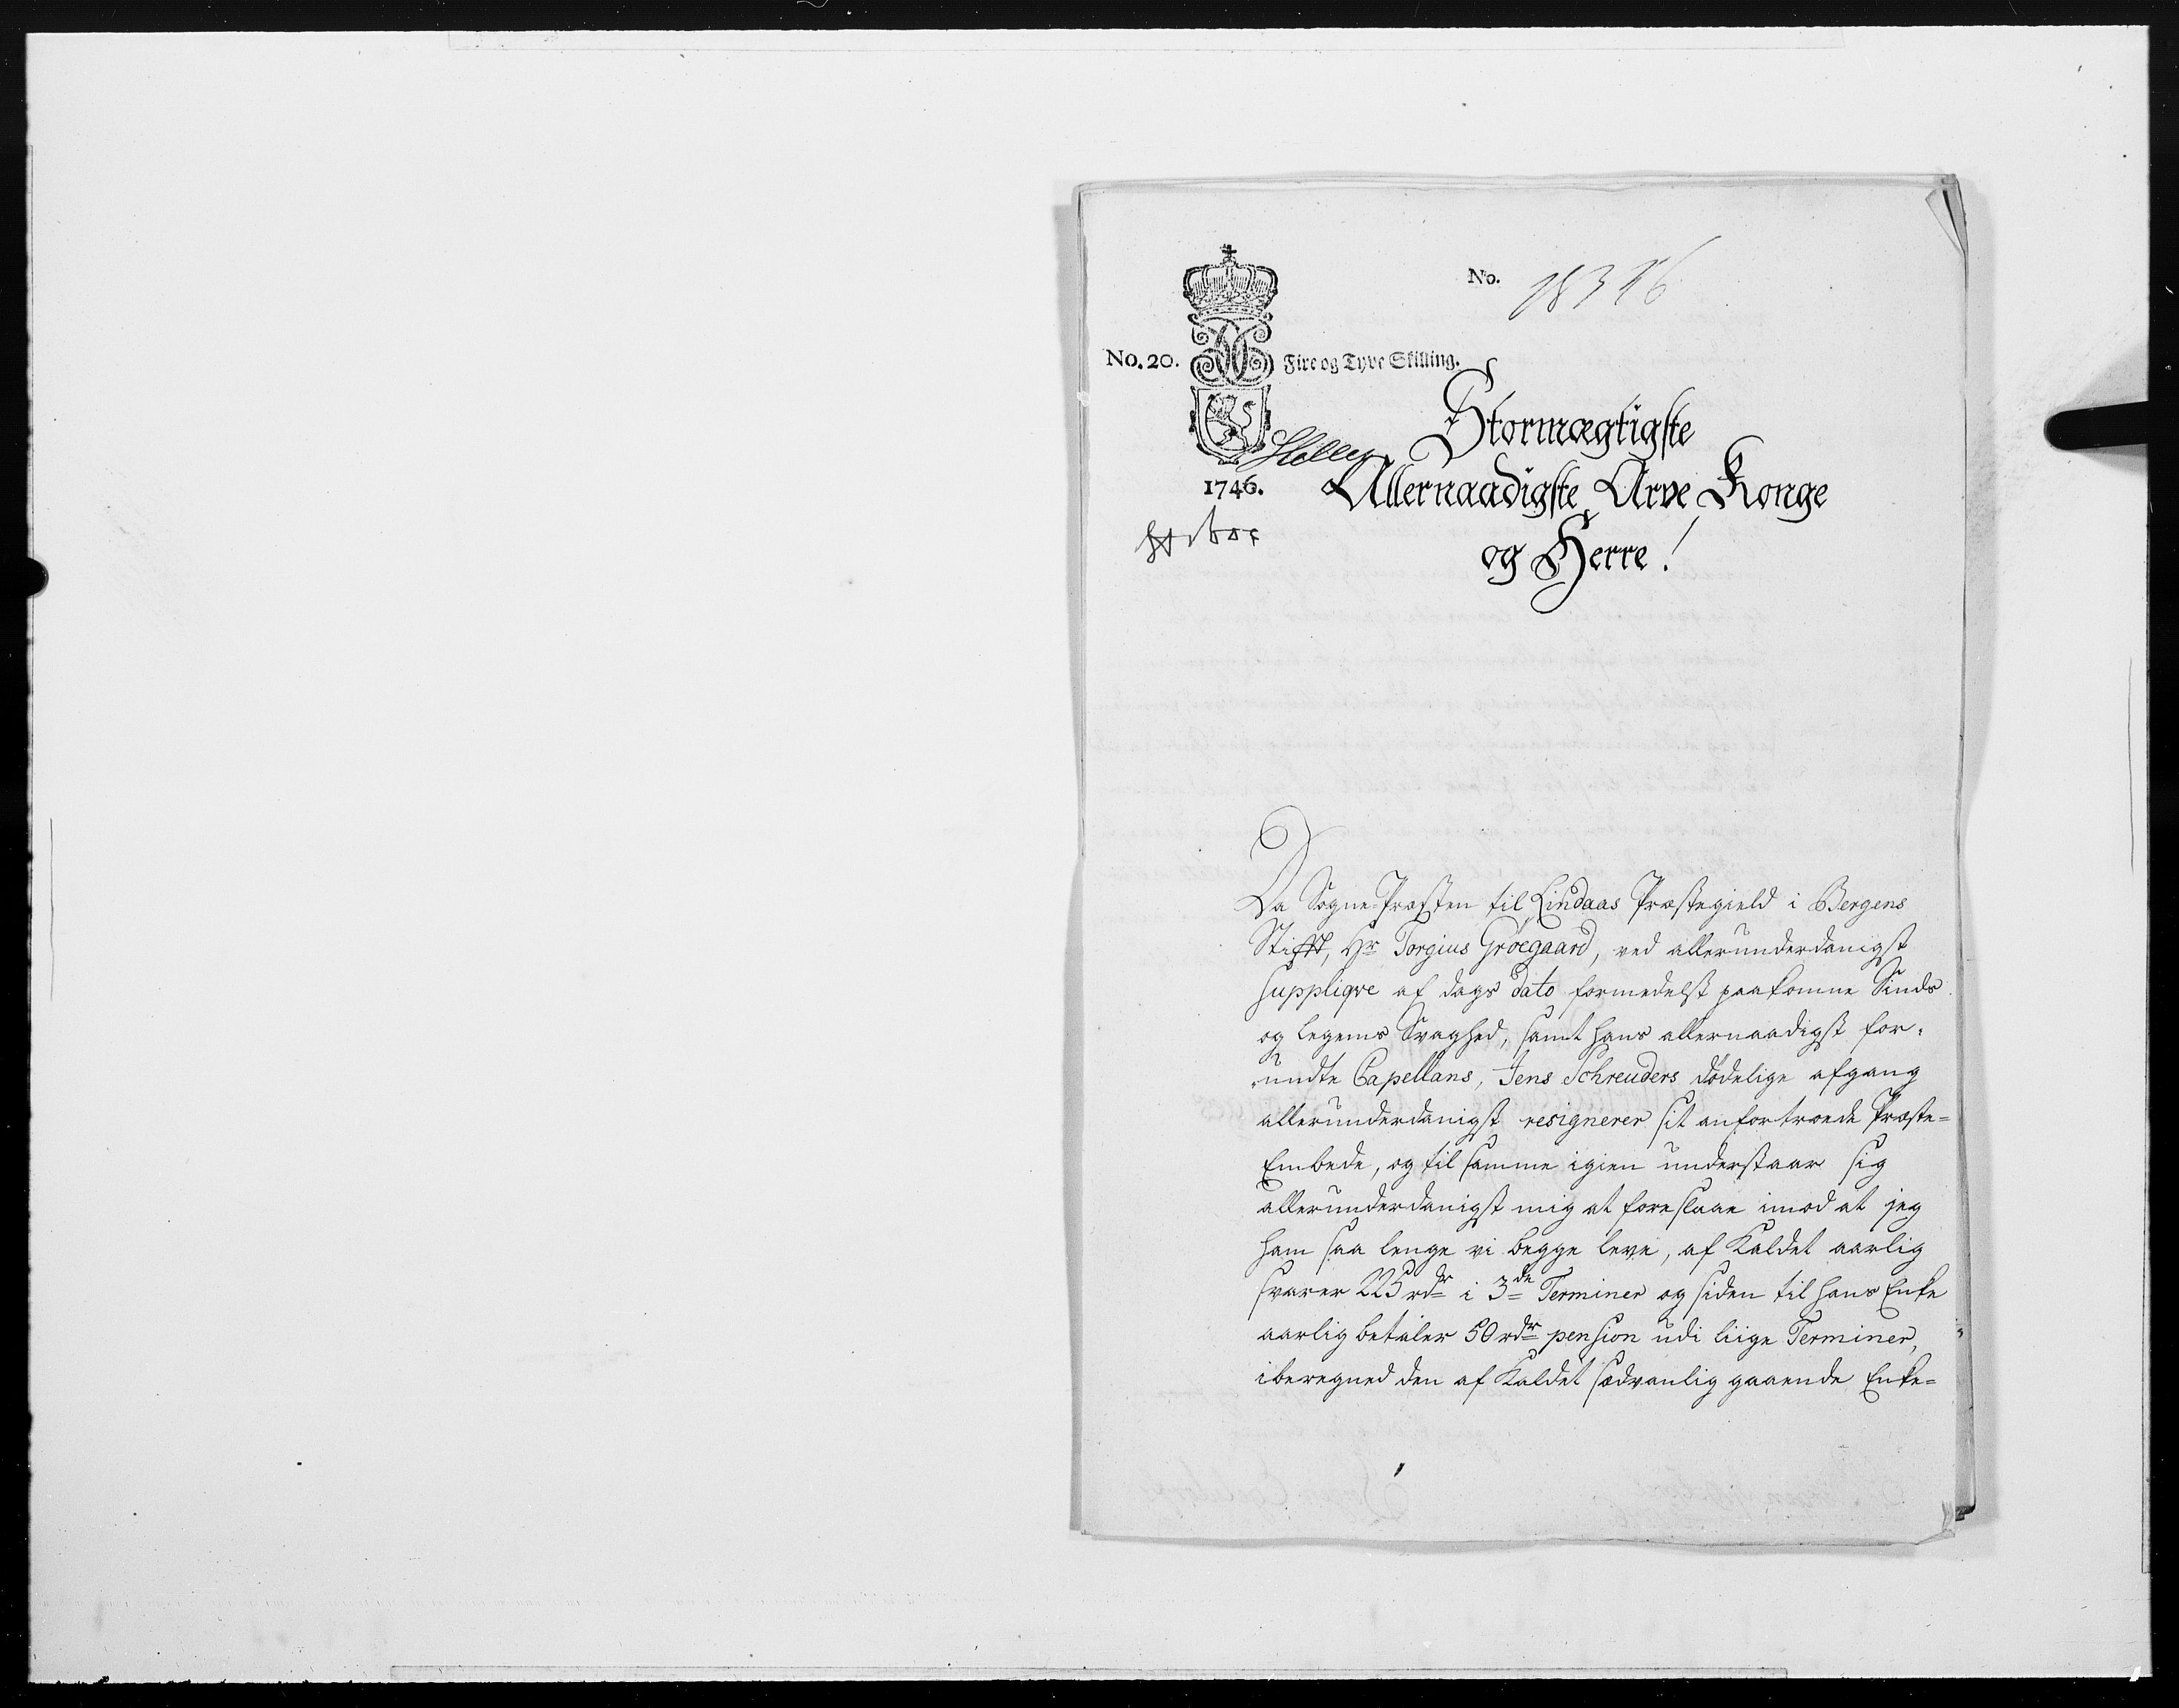 No. 18346
No. 20. Fire og Tyve Skilling.
Stormægtigste
1746. Allernaadigste Arve Konge
og Herre!
Da Sogne-Præsten til Lindaas Præstegield i Bergens
Stifft, Hr Torgius Gröegaard, ved allerunderdanigst
suppliqve af dags dato formedelst paakomne Sinds
og legems Svaghed, samt hans allernaadigst for-
undte Capellans, Jens Schreuders dödelige afgang
allerunderdanigst resignerer sit anfortroede Præste=
Embede, og til samme igien understaar sig
allerunderdanigst mig at foreslaae imod at jeg
ham saa lenge vi begge leve, af Kaldet aarlig
svarer 225 rdr i 3de Terminer og siden til hans Enke
aarlig betaler 50 rdr pension udi liige Terminer,
iberegned den af Kaldet sædvanlig gaaende Enke=